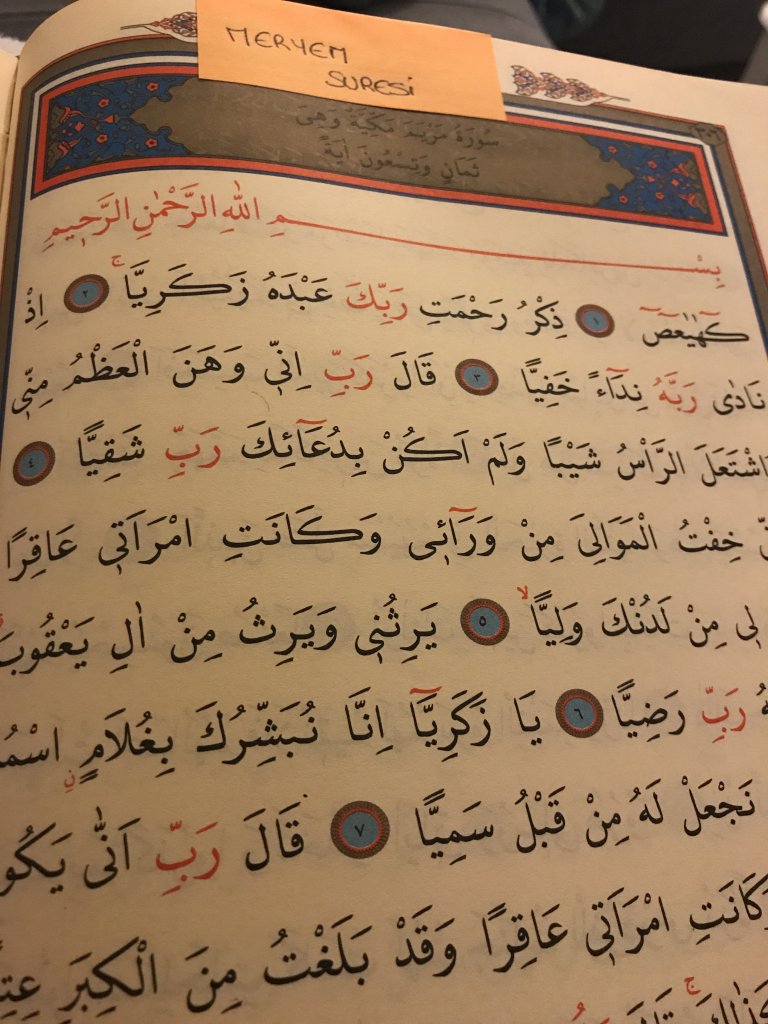 MERYEM
SURESİ
سُورَةُ مَرْيَمَ مَكِّيَّةٌ وَهِىَ
ثَمَانٍ وَتِسْعُونَ اٰيَةً
بِسْمِ اللّٰهِ الرَّحْمٰنِ الرَّحٖيمِ
كٓهٰيٰعٓصٓ ١ ذِكْرُ رَحْمَتِ رَبِّكَ عَبْدَهُ زَكَرِيَّاۚ ٢ اِذْ
نَادٰى رَبَّهُ نِدَٓاءً خَفِيًّا ٣ قَالَ رَبِّ اِنّٖى وَهَنَ الْعَظْمُ مِنّٖى
اشْتَعَلَ الرَّأْسُ شَيْبًا وَلَمْ اَكُنْ بِدُعَٓائِكَ رَبِّ شَقِيًّا ٤
خِفْتُ الْمَوَالِىَ مِنْ وَرَٓائٖى وَكَانَتِ امْرَاَتٖى عَاقِرًا
لٖى مِنْ لَدُنْكَ وَلِيًّاۙ ٥ يَرِثُنٖى وَيَرِثُ مِنْ اٰلِ يَعْقُوبَ
رَبِّ رَضِيًّا ٦ يَا زَكَرِيَّٓا اِنَّا نُبَشِّرُكَ بِغُلَامٍ اسْمُ
نَجْعَلْ لَهُ مِنْ قَبْلُ سَمِيًّا ٧ قَالَ رَبِّ اَنّٰى يَكُو
كَانَتِ امْرَاَتٖى عَاقِرًا وَقَدْ بَلَغْتُ مِنَ الْكِبَرِ